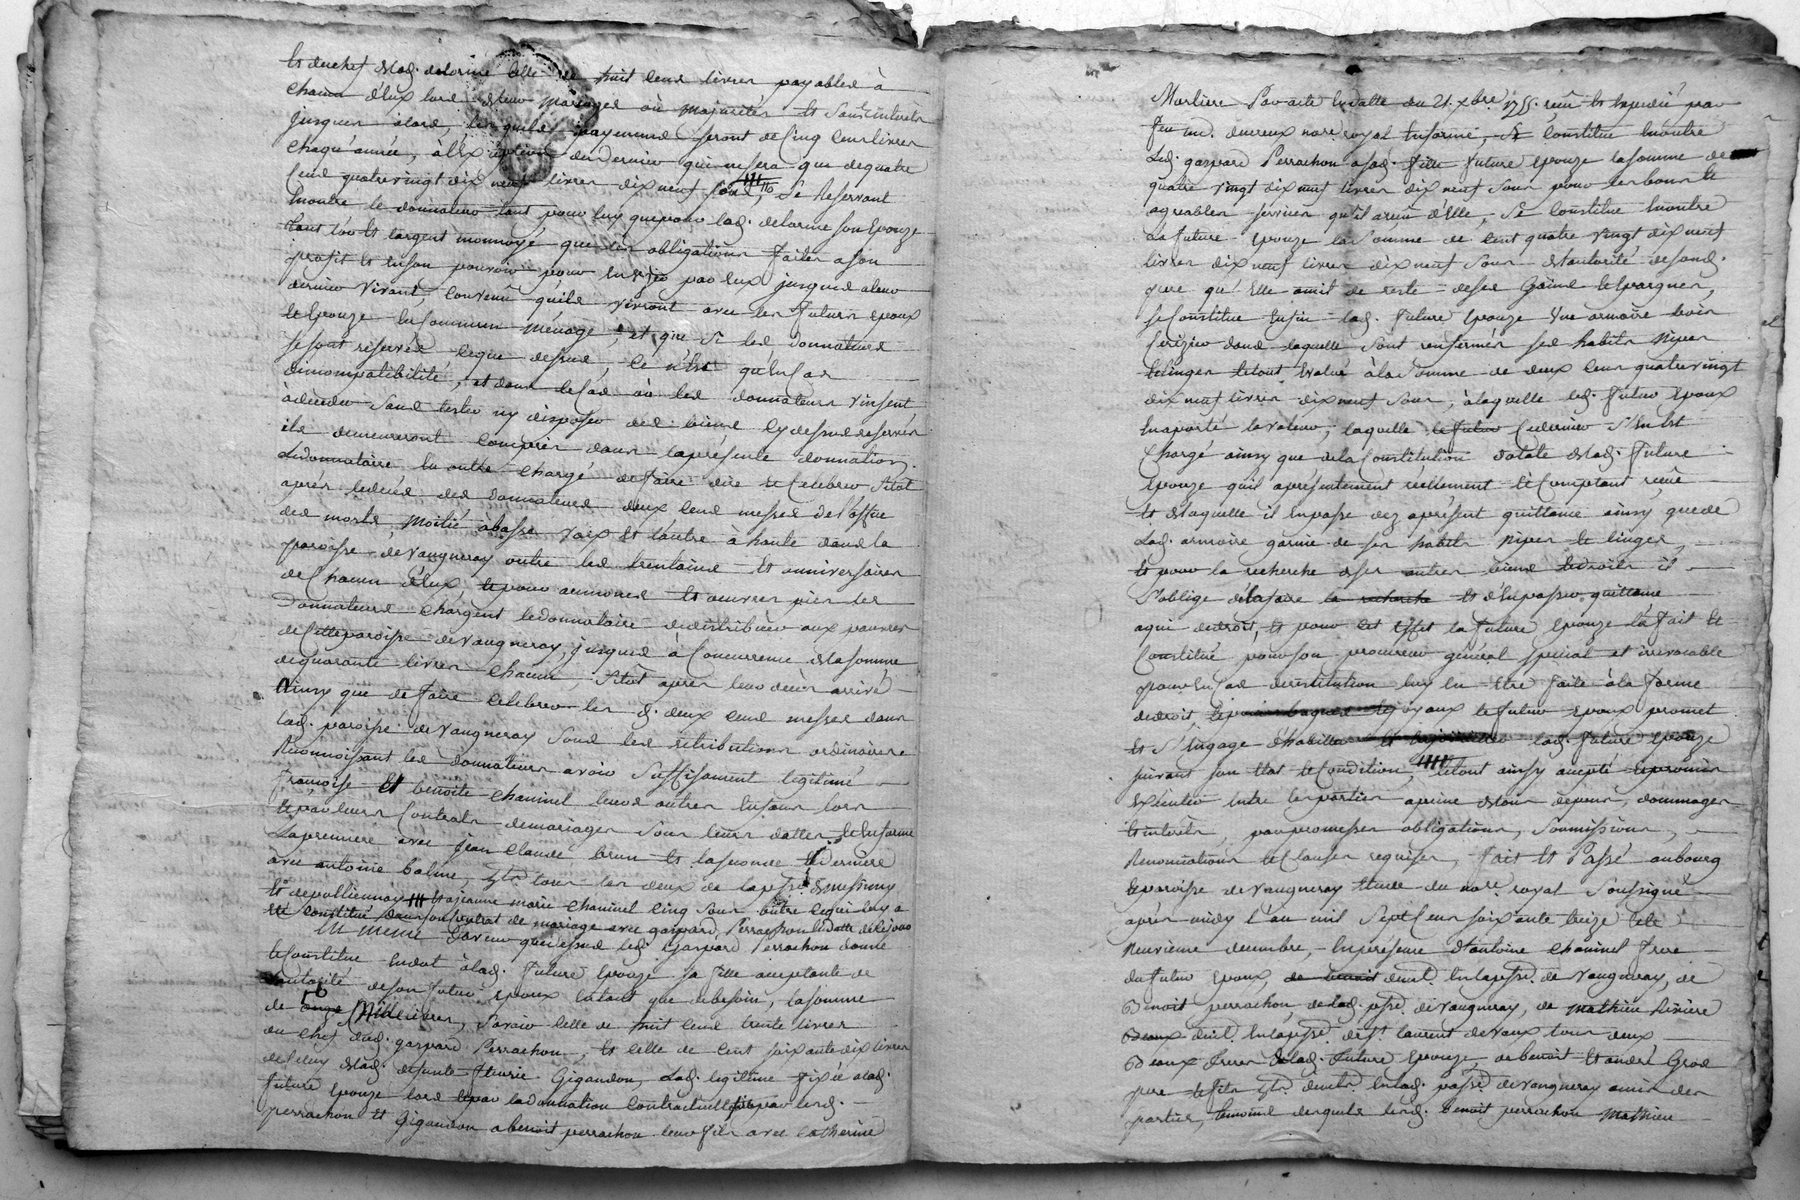 et du chef de lad. delorme celle de huit cent livres payables à
chacun d'eux lors de leur mariages ou majorités et sans intérêts
jusques alors, lesquels payements seront de cinq cent livres
chaque année, à l'exception du dernier qui ne sera que de quatre
cent quatre vingt dix neuf livres dix neuf sous, se reservant
en outre le donnateur tant pour luy que pour lad. delorme son epouze
tant l'or et l'argent monnoyé que les obligations faites a son
profit et en son pouvoir pour en par eux jusques a leur
dernier vivant, convenu qu'ils vivront avec les futurs epoux
et epouze en commun menage, et que si les donnateurs
se sont réservés ce que dessus, ce n'est qu'en cas
d'incompatibilité, et dans le cas où les donnateurs vinsent
à déceder sans tester ny disposer des biens cy dessus reservés
ils demeureront compris dans la présente donnation,
le donnataire en outre chargé de faire dire et celebrer sitot
apres le décès des donnateurs deux cens messes de l'office
des morts, moitié à basse voix et l'autre à haute dans la
paroisse de vaugneray outre les trentaines et anniversaires
de chacun d'eux, et pour aumones et oeuvres pies les
donnateurs chargent le donnataire de distribuer aux pauvres
de cette paroisse de vaugneray, jusques à concurrence de la somme
de quarante livres chacun, sitot apres leur décès arrivé
ainsy que de faire celebrer les d. deux cens messes dans
lad. paroisse de vaugneray sous les retributions ordinaires
reconnoissant les donnateurs avoir suffisament legitimé
françoise et benoite chaninel leurs autres enfans lors
et par leurs contrats de mariages sous leurs dattes et en forme
la premiere avec jean claude brun et la seconde et derniere
avec antoine balme, tous les deux de la psse. de messimy
et de pollionnay et a jeanne marie chaninel cinq sous outre ce qui luy a
été constitué dans son contrat de mariage avec gaspard Perrachon
En meme faveur que dessus led. Gaspard Perrachon donne
et constitue en dot à lad. future epouze sa fille acceptante de
l'autorité de son futur epoux en tant que de besoin, la somme
de mille livres, savoir celle de huit cens trente livres
du chef dud. gaspard Perrachon, et celle de cent soixante dix livres
de celuy de lad. defunte fleurie Gigandon, lad. legitime fixée a lad.
future epouze lors et par la donnation contractuelle faite par lesd.
perrachon et Gigandon a benoit perrachon leur fils avec catherine
Marliere par acte en datte du 21. xbre. 1755, reçu et expedié par
feu me. duereux nore. royal en forme, se constitue en outre
led. gaspard Perrachon a sad. fille future epouze la somme de
quatre vingt dix neuf livres dix neuf sous pour les bons et
agreables services qu'il a reçu d'elle, se constitue en outre
la future epouze la somme de cent quatre vingt dix neuf
livres dix neuf livres dix neuf sous de l'autorité de sond.
pere qu'elle a mis de reste de ses gains et epargnes,
se constitue enfin lad. future epouze une armoire bois
cerizier dans laquelle sont renfermés ses habits nipes
et linges le tout evalué à la somme de deux cens quatre vingt
dix neuf livres dix neuf sous, à laquelle led. futur epoux
en a porté la valeur, laquelle le futur ce dernier s'en est
chargé ainsy que de la constitution dotale de lad. future
epouze qu'il a présentement réellement et comptant reçue
et de laquelle il en passe dez a présent quittance ainsy que de
lad. armoire garnie de ses habits nipes et linges,
et pour la recherche des autres biens et droits il
s'oblige d'en faire la recherche et d'en passer quittance
a qui de droit, et pour cet effet la future epouze l'a fait et
constitué pour son procureur general special et irrevocable
pour en cas de restitution luy en etre faite à la forme
de droit, et pour bagues et joyaux le futur epoux promet
et s'engage d'habiller lad. future epouze
suivant son etat et condition, le tout ainsy accepté et promis
executer entre les parties a peine de tous depens, dommages
et intérêts, par promesses obligations, soumissions,
renonciations et clauses requises, fait et Passé au bourg
et paroisse de vaugneray etude du nore. royal soussigné
après midy l'an mil sept cens soixante treize le
neuvieme decembre, en présence d'antoine chaninel frere
du futur epoux, de benoit demt. en la psse. de vaugneray, de
Benoit perrachon, de lad. psse. de vaugneray, de mathieu Riviere
Beaux demt. en la psse. de st. laurent de vaux tous deux
Beaux freres de lad. future epouze, de benoit et andré Gros
pere et fils demts. en lad. psse. de vaugneray amis des
parties, temoins desquels lesd. benoit perrachon mathieu